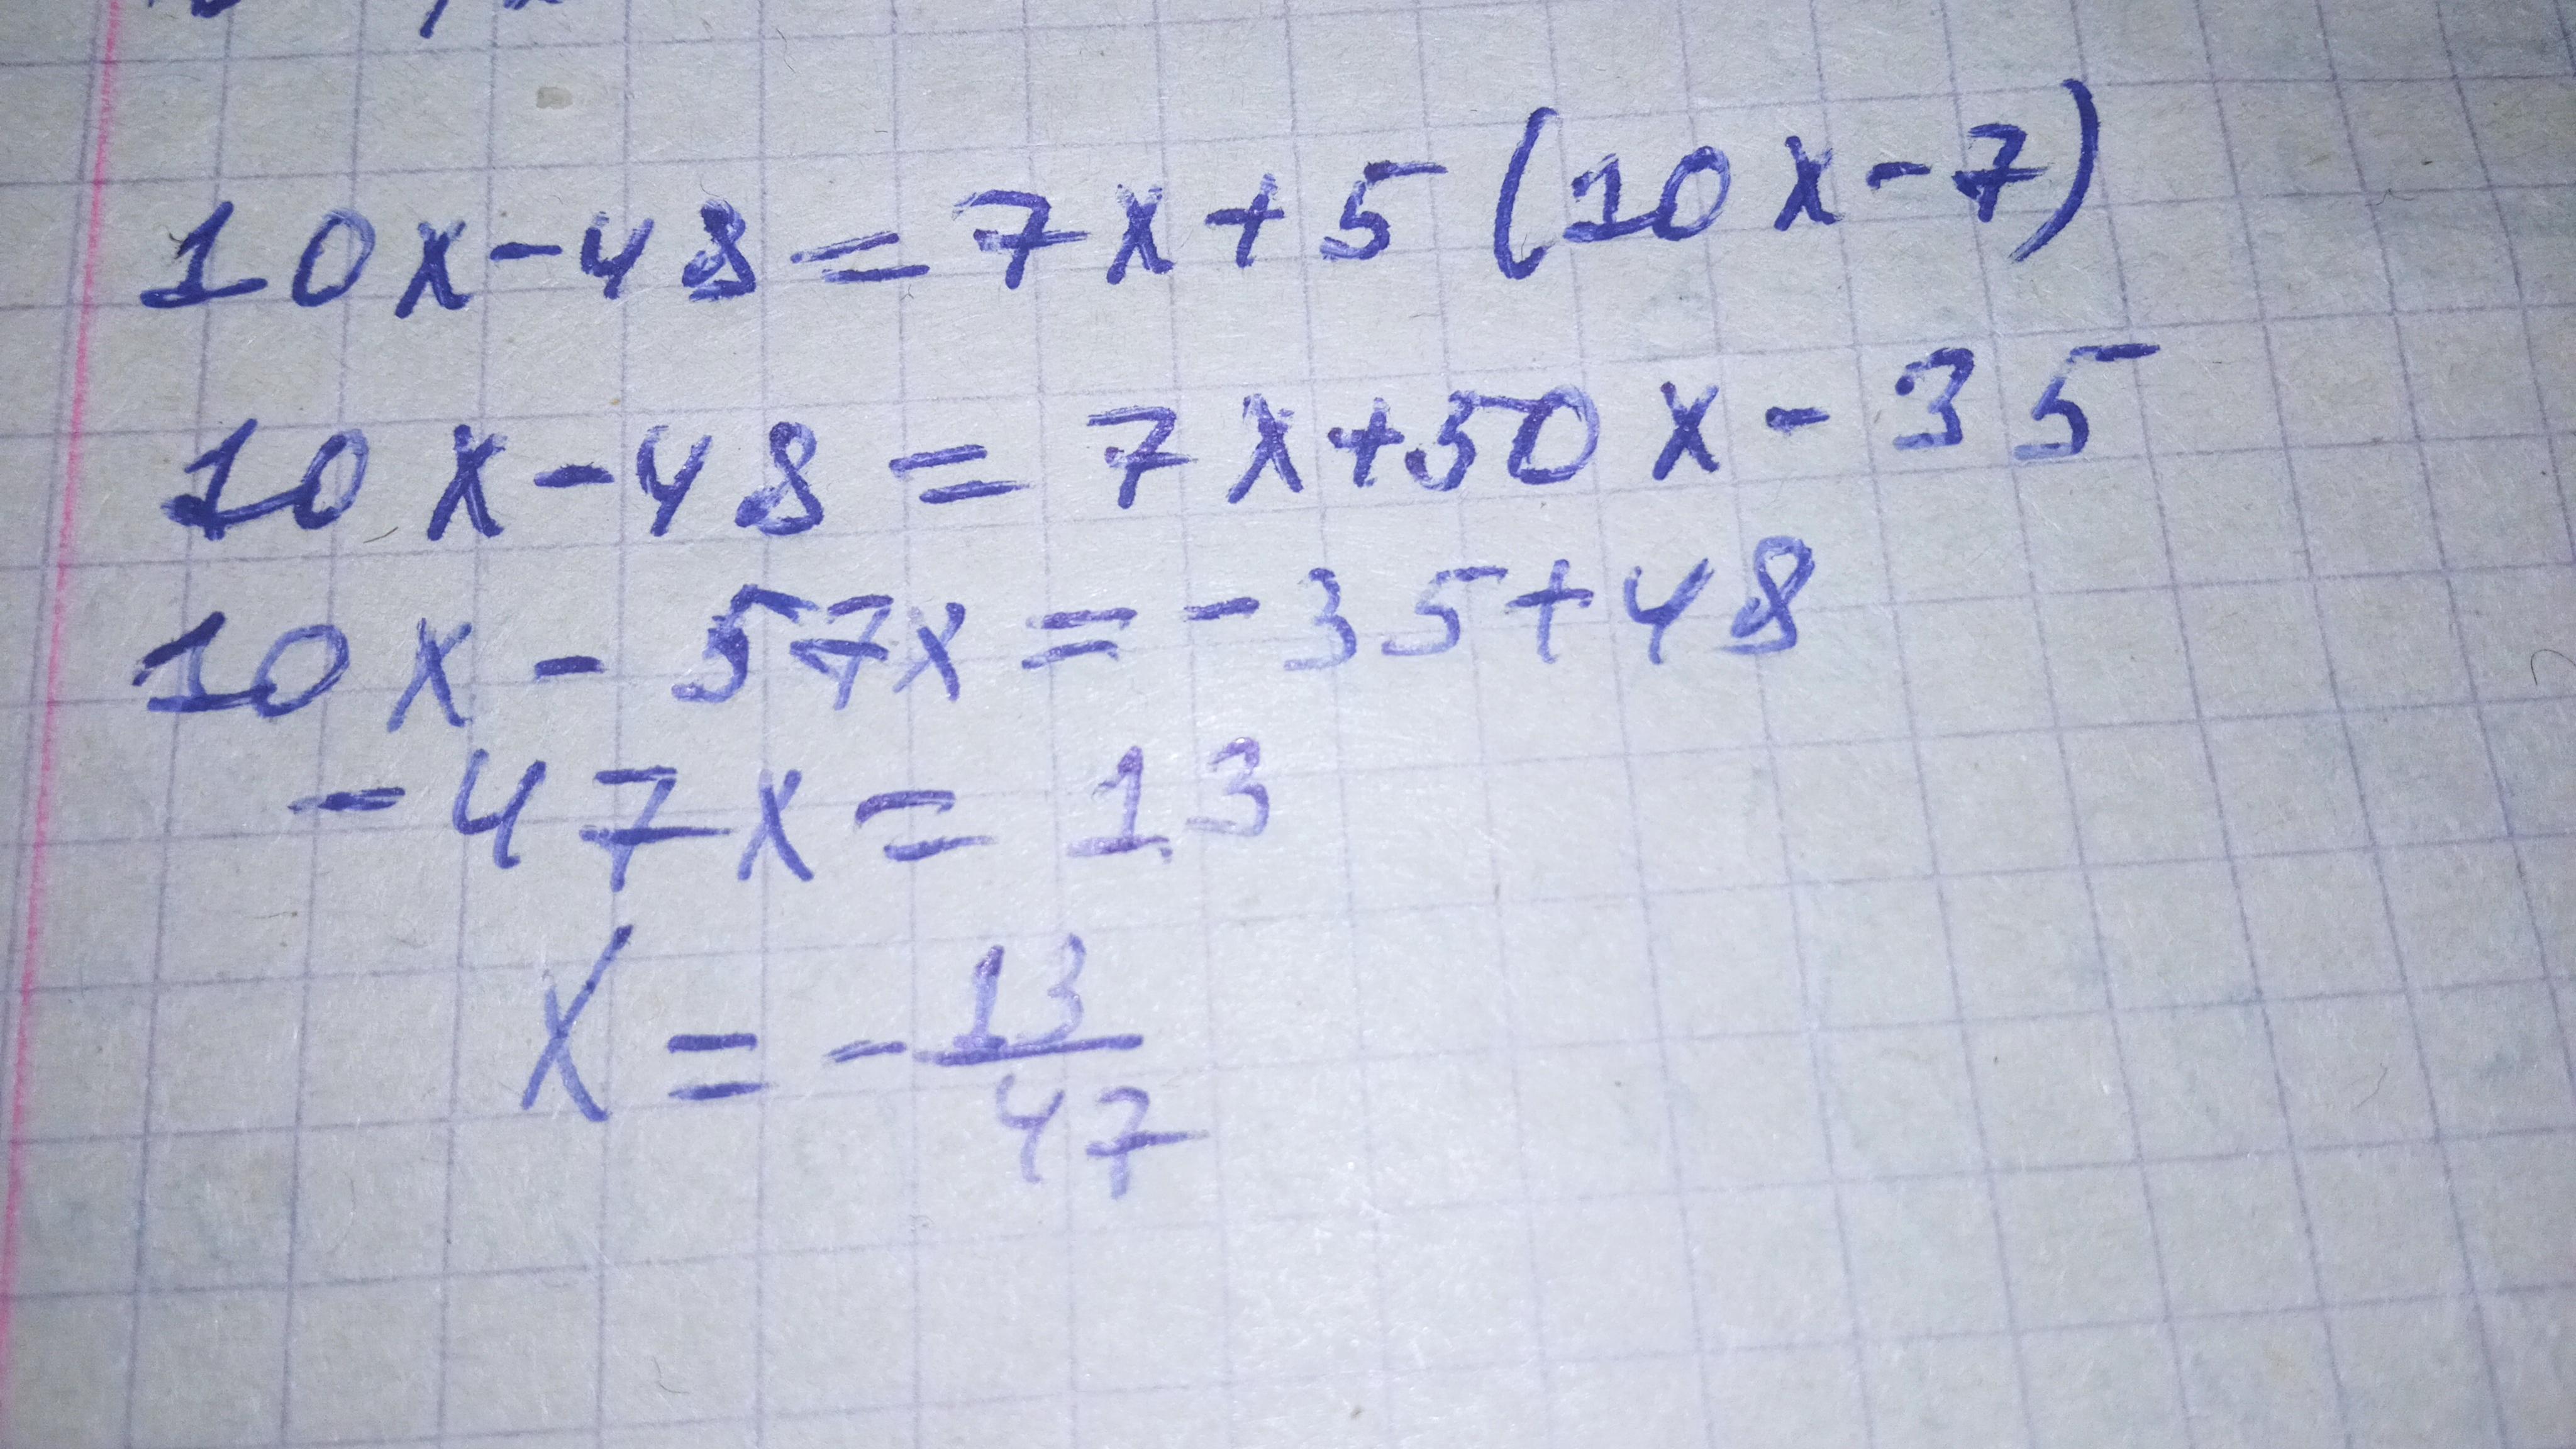 10x-48=7x+5(10x-7)
10x-48=7x+50x-35
10x-57x=-35+48
-47x=13
x=-13/47